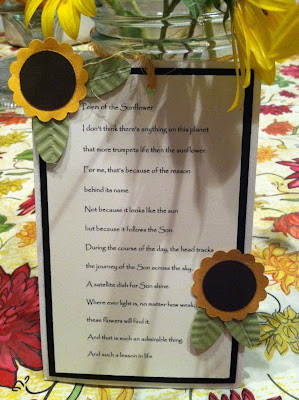 Poem of the Sunflower
I don't think there's anything on this planet
that more trumpets life then the sunflower.
For me, that's because of the reason
behind its name.
Not because it looks like the sun
but because it follows the Son.
During the course of the day, the head tracks
the journey of the Son across the sky.
A satellite dish for Son shine.
Where ever light is, no matter how weak,
these flowers will find it.
And that is such an admirable thing.
And such a lesson in life